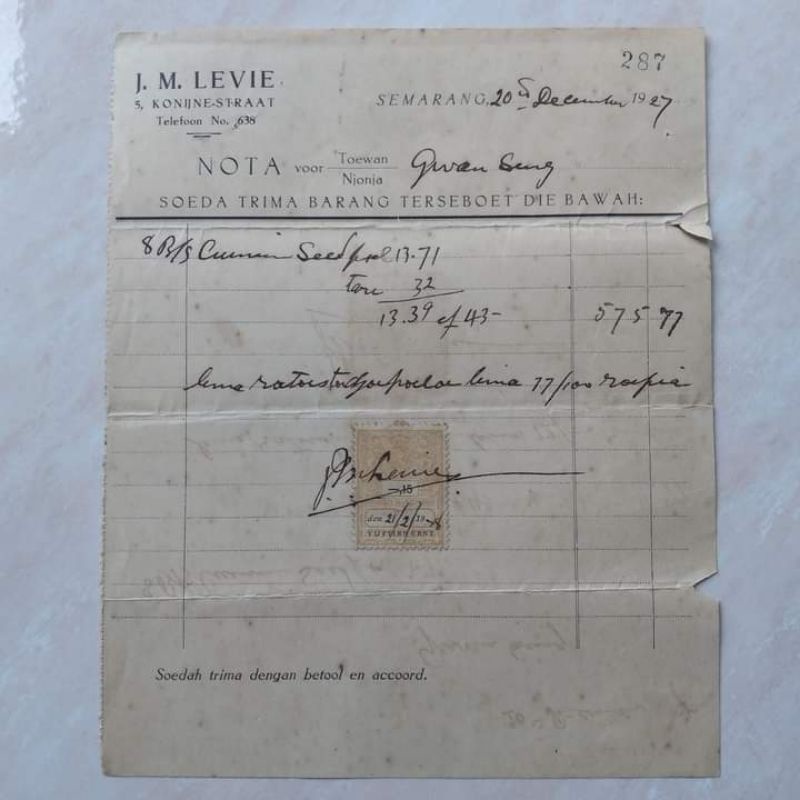 287
J. M. LEVIE
5, KONIJNE-STRAAT
Telefoon No. 638
SEMARANG, 20 December 1927
NOTA voor Toewan
Njonja
Gwan Seng
SOEDA TRIMA BARANG TERSEBOET DIE BAWAH:
8 B/s Cummin Seed 13.71
tara 32
13.39 cf 43- 575 77
lima ratoes toedjoepoeloe lima 77/100 roepia
J M Levie
,15
den 21/2/19
VIJFTIEN CENT
Soedah trima dengan betool en accoord.